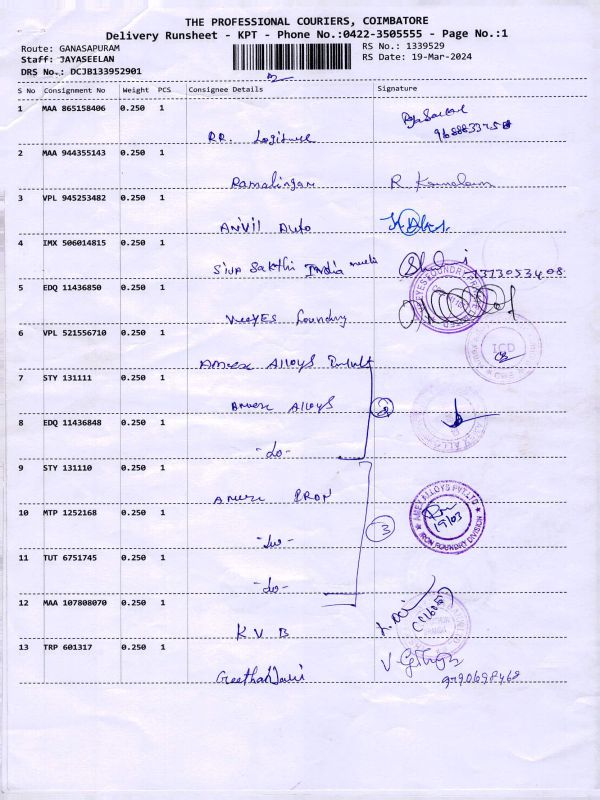 THE PROFESSIONAL COURIERS, COIMBATORE
Delivery Runsheet - KPT - Phone No.:0422-3505555 - Page No.:1
Route: GANASAPURAM
RS No.: 1339529
Staff: JAYASEELAN
RS Date: 19-Mar-2024
DRS No.: DCJB133952901
S No Consignment No Weight PCS Consignee Details Signature
1 MAA 865158406 0.250 1
RR.
2 MAA 944355143 0.250 1
Ramalingam R
3 VPL 945253482 0.250 1
ANVIL Auto
4 IMX 506014815 0.250 1
SIVA Sakthi India
5 EDQ 11436850 0.250 1
VeeYES Foundry
6 VPL 521556710 0.250 1
TCD
Amex ALLOYS
7 STY 131111 0.250 1
Amex ALLOYS
8 EDQ 11436848 0.250 1
-do-
9 STY 131110 0.250 1
Amex IRON
AMEX ALLOYS PVT LTD
IRON FOUNDRY DIVISION
19/03
10 MTP 1252168 0.250 1
3
-do-
11 TUT 6751745 0.250 1
-do-
12 MAA 107808070 0.250 1
KVB
13 TRP 601317 0.250 1
V
9790698468